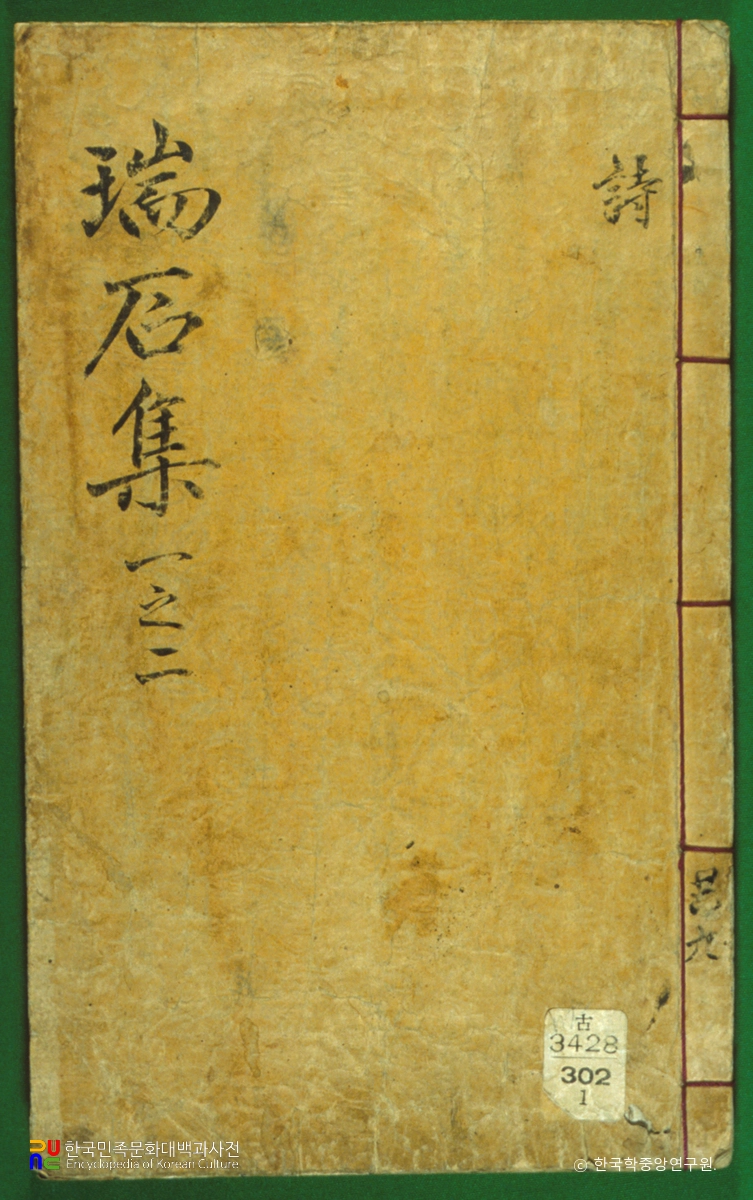 詩
瑞石集 一之二
共九
古
3428
302
1
한국민족문화대백과사전
Encyclopedia of Korean Culture
© 한국학중앙연구원